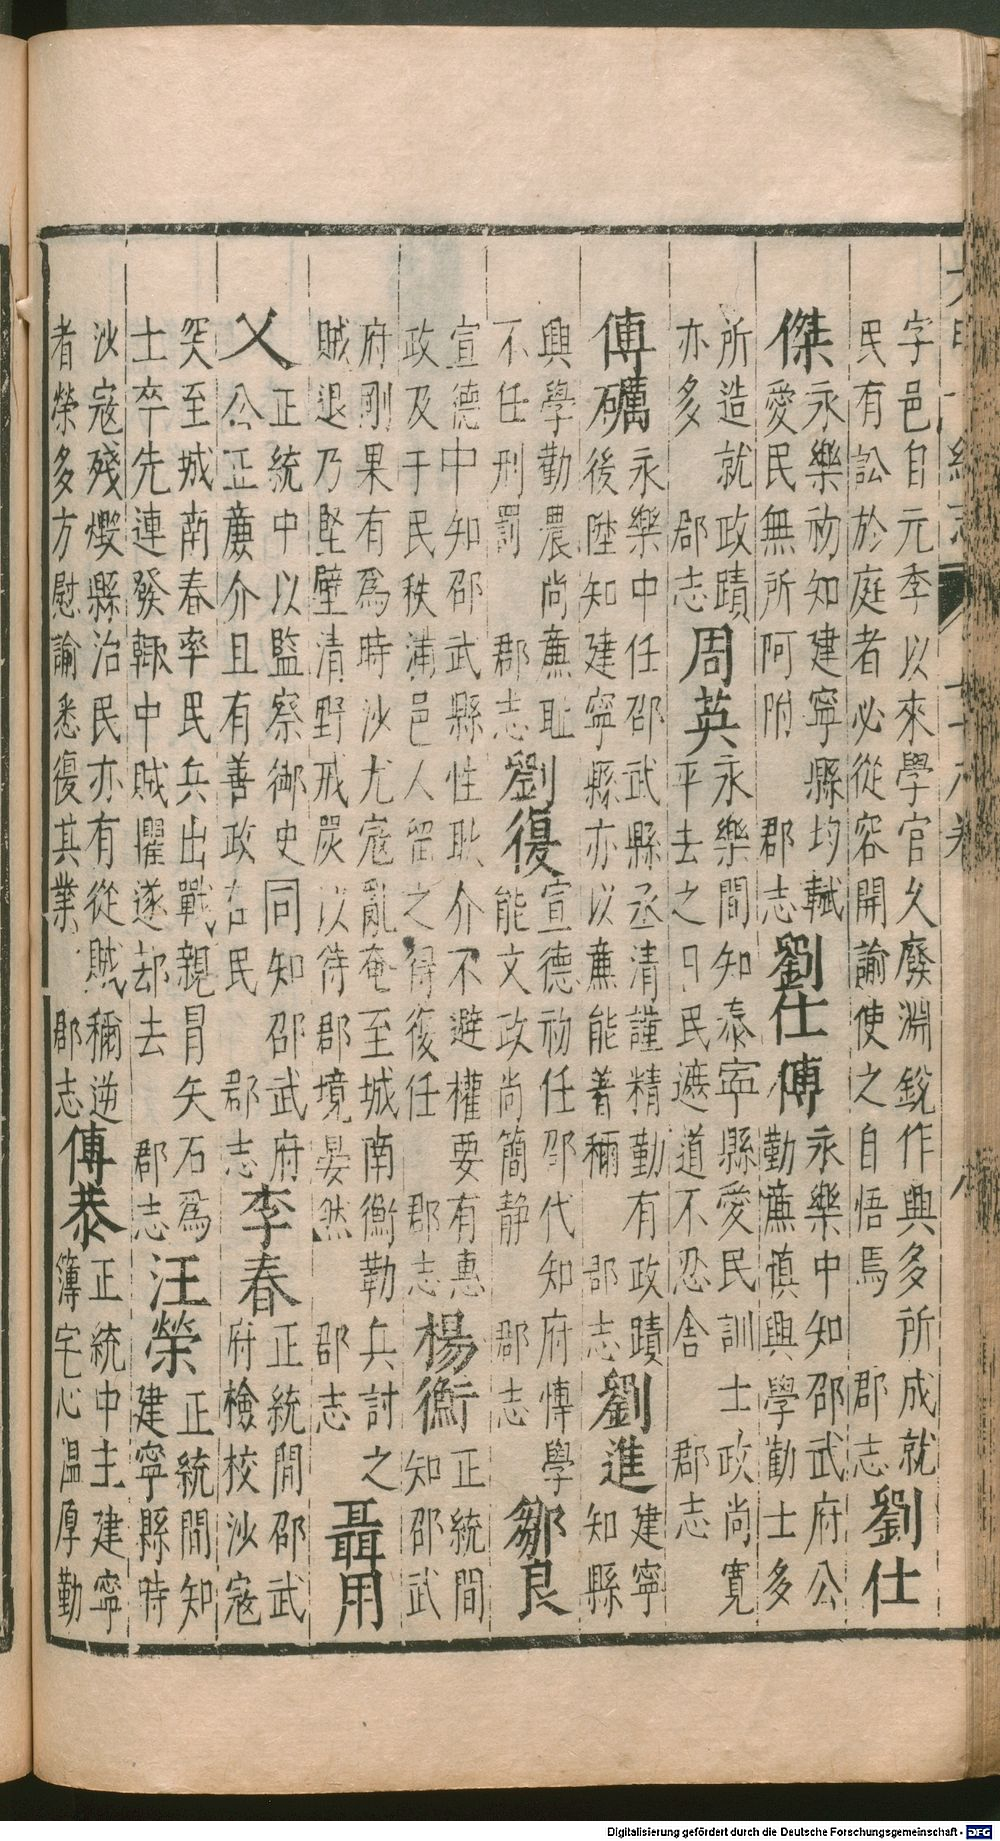 字邑自元季以來學官久廢淵銳作興多所成就
民有訟於庭者必從容開諭使之自悟焉 郡志
劉仕
傑
永樂初知建寧縣均賦
愛民無所阿附 郡志
劉仕傅
永樂中知邵武府公
勤廉慎興學勸士多
所造就政蹟
亦多 郡志
周英
永樂間知泰寧縣愛民訓士政尚寬
平去之日民遮道不忍舍 郡志
傅礪
永樂中任邵武縣丞清謹精勤有政蹟
後陞知建寧縣亦以廉能著稱 郡志
劉進
建寧
知縣
興學勤農尚廉耻
不任刑罰 郡志
劉復
宣德初任邵代知府愽學
能文政尚簡静 郡志
鄒良
宣德中知邵武縣性耿介不避權要有惠
政及于民秩滿邑人留之得復任 郡志
楊衡
正統間
知邵武
府剛果有爲時沙尤寇亂奄至城南衡勒兵討之
賊退乃堅壁清野戒嚴以待郡境晏然 郡志
聶用
乂
正統中以監察御史同知邵武府
公正廉介且有善政在民 郡志
李春
正統間邵武
府檢校沙寇
突至城南春率民兵出戰親冒矢石爲
士卒先連發輙中賊懼遂却去 郡志
汪榮
正統間知
建寧縣時
沙寇殘燬縣治民亦有從賊稱逆
者榮多方慰諭悉復其業 郡志
傅恭
正統中主建寧
簿宅心温厚勤
Digitalisierung gefördert durch die Deutsche Forschungsgemeinschaft - DFG